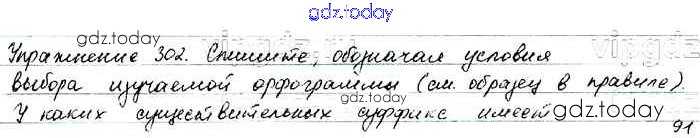 gdz.today
Упражнение 302. Спишите, обозначая условия
gdz.today
выбора изучаемой орфограммы (см. образец в правиле).
gdz.today
У каких существительных суффикс имеет
gdz.today
91